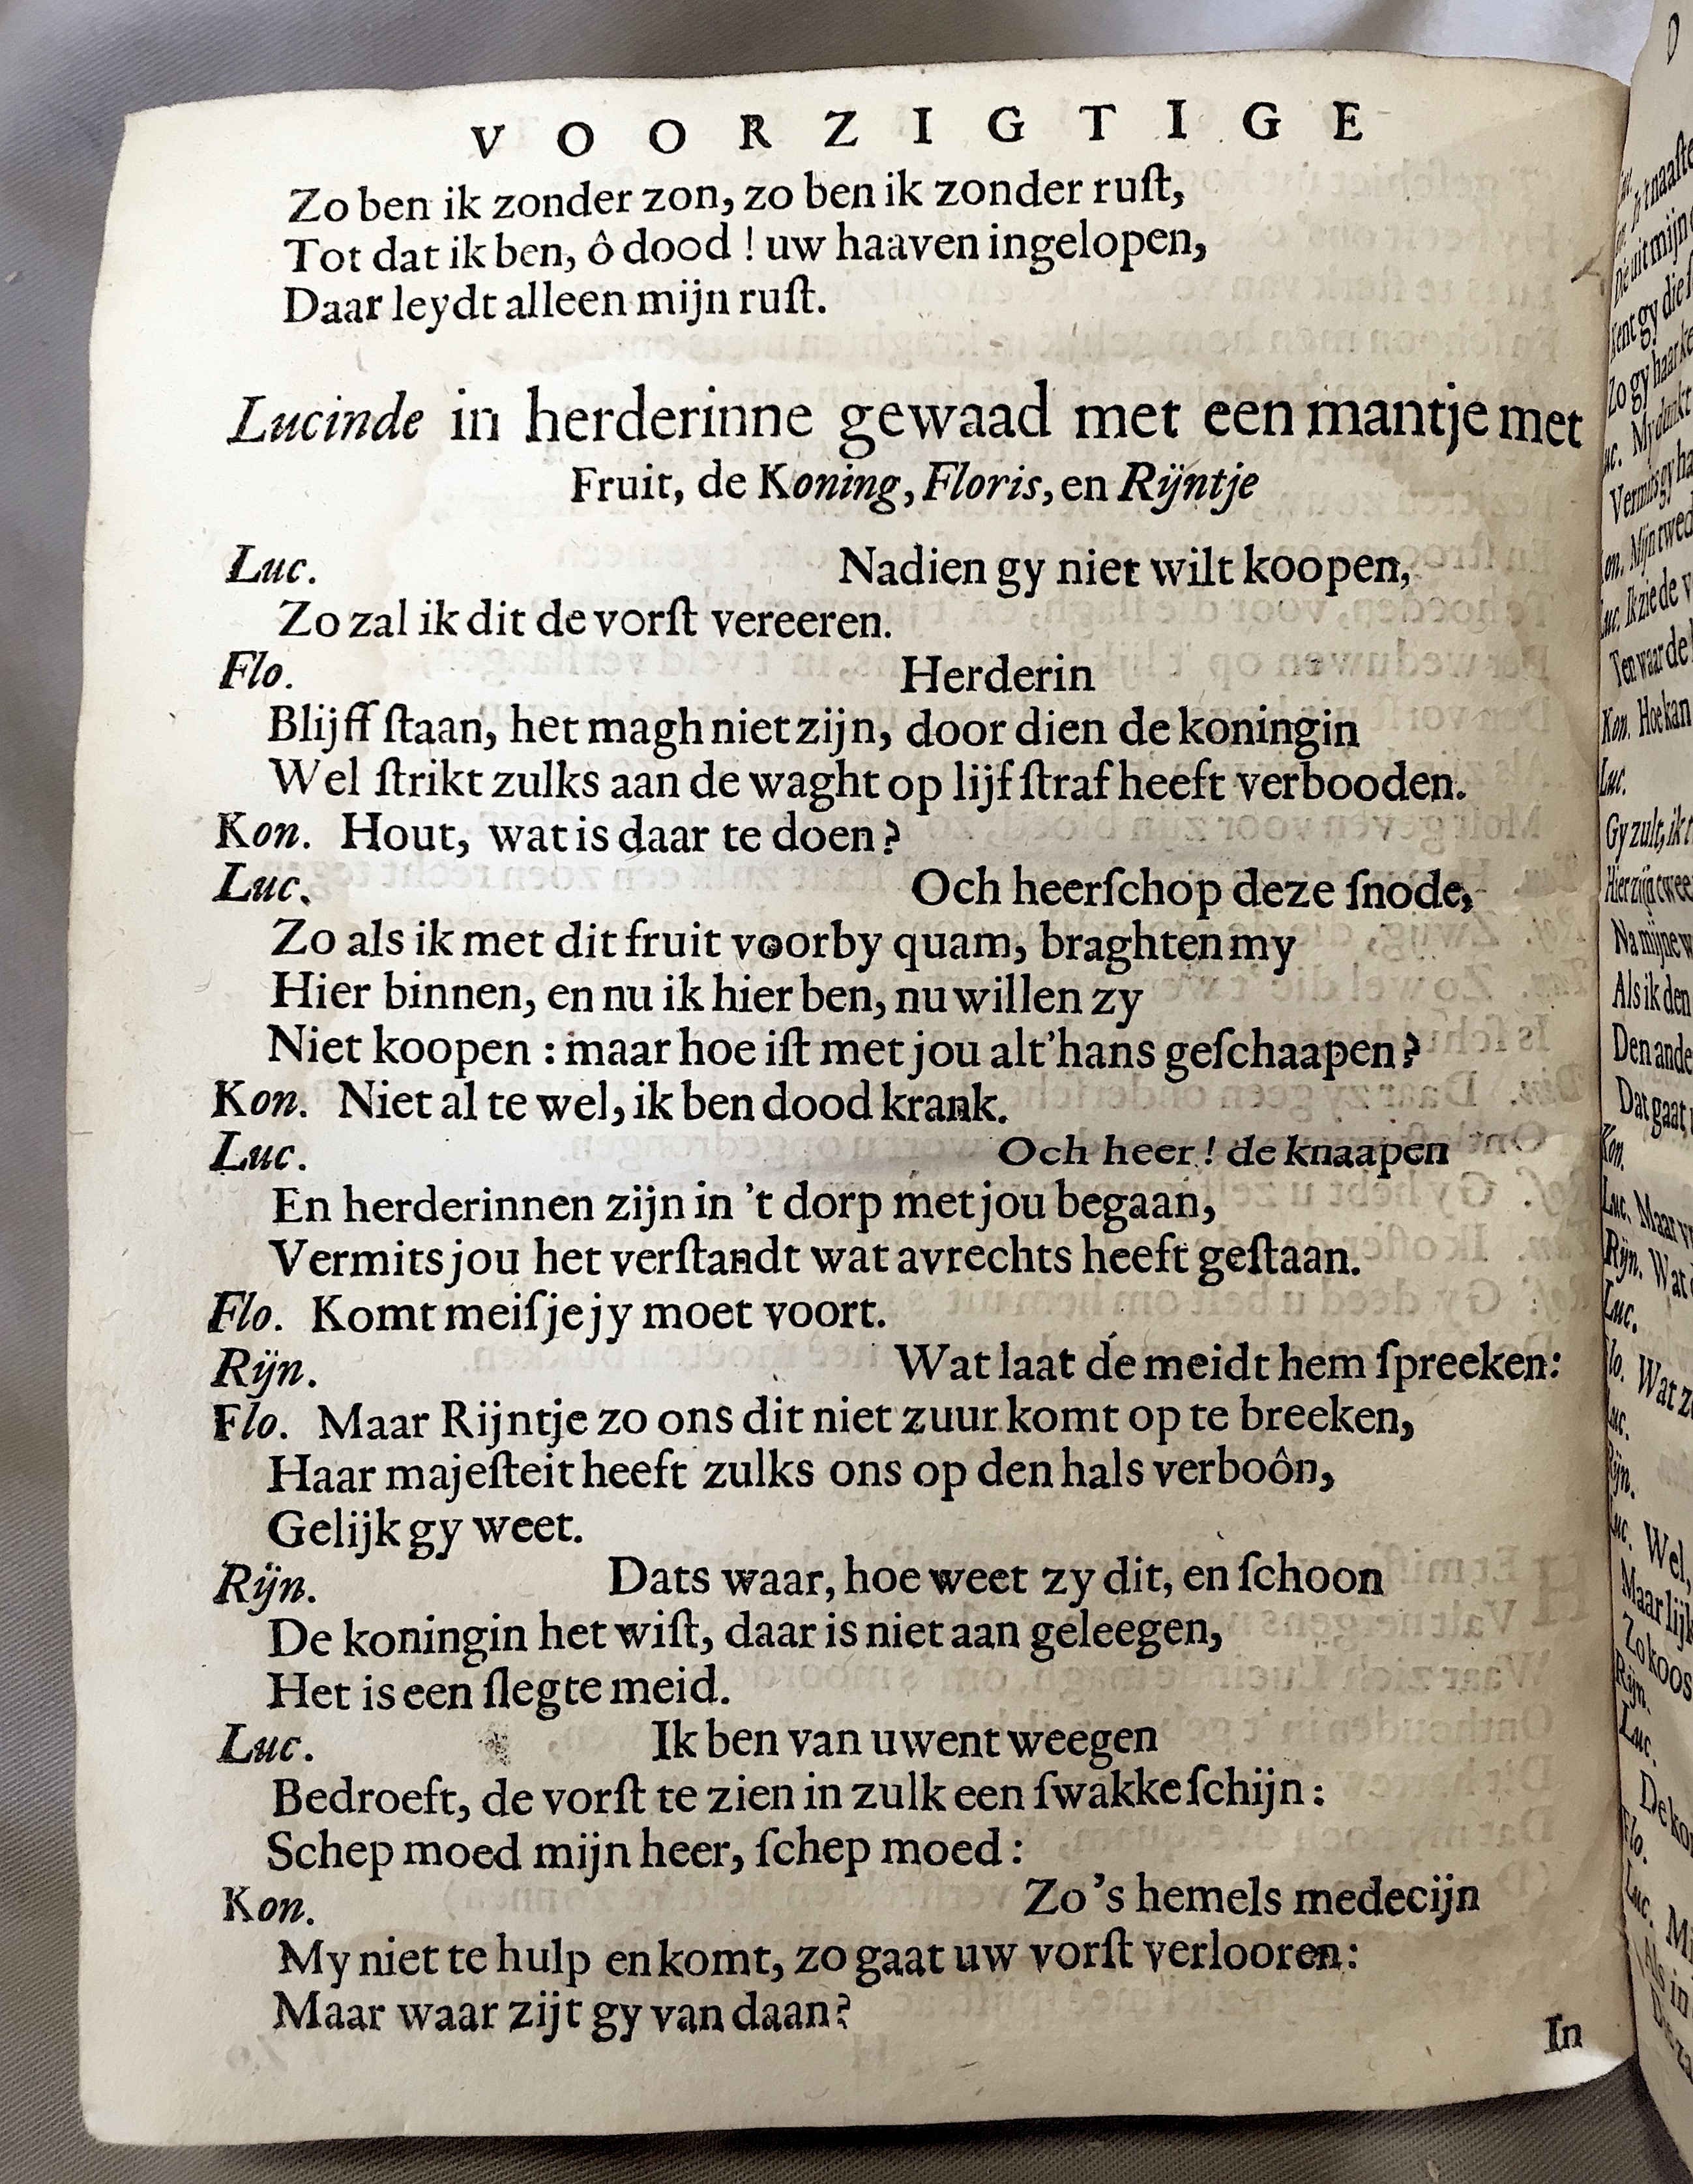 VOORZIGTIGE
Zo ben ik zonder zon, zo ben ik zonder ruſt,
Tot dat ik ben, ô dood ! uw haaven ingelopen,
Daar leydt alleen mijn ruſt.
Lucinde in herderinne gewaad met een mantje met
Fruit, de Koning, Floris, en Rijntje
Luc. Nadien gy niet wilt koopen,
Zo zal ik dit de vorſt vereeren.
Flo. Herderin
Blijff ſtaan, het magh niet zijn, door dien de koningin
Wel ſtrikt zulks aan de waght op lijf ſtraf heeft verbooden.
Kon. Hout, wat is daar te doen?
Luc. Och heerſchop deze ſnode,
Zo als ik met dit fruit voorby quam, braghten my
Hier binnen, en nu ik hier ben, nu willen zy
Niet koopen : maar hoe iſt met jou alt'hans geſchaapen?
Kon. Niet al te wel, ik ben dood krank.
Luc. Och heer ! de knaapen
En herderinnen zijn in 't dorp met jou begaan,
Vermits jou het verſtandt wat avrechts heeft geſtaan.
Flo. Komt meiſje jy moet voort.
Rijn. Wat laat de meidt hem ſpreeken:
Flo. Maar Rijntje zo ons dit niet zuur komt op te breeken,
Haar majeſteit heeft zulks ons op den hals verboôn,
Gelijk gy weet.
Rijn. Dats waar, hoe weet zy dit, en ſchoon
De koningin het wiſt, daar is niet aan geleegen,
Het is een ſlegte meid.
Luc. Ik ben van uwent weegen
Bedroeft, de vorſt te zien in zulk een ſwakke ſchijn :
Schep moed mijn heer, ſchep moed :
Kon. Zo 's hemels medecijn
My niet te hulp en komt, zo gaat uw vorſt verlooren :
Maar waar zijt gy van daan?
In